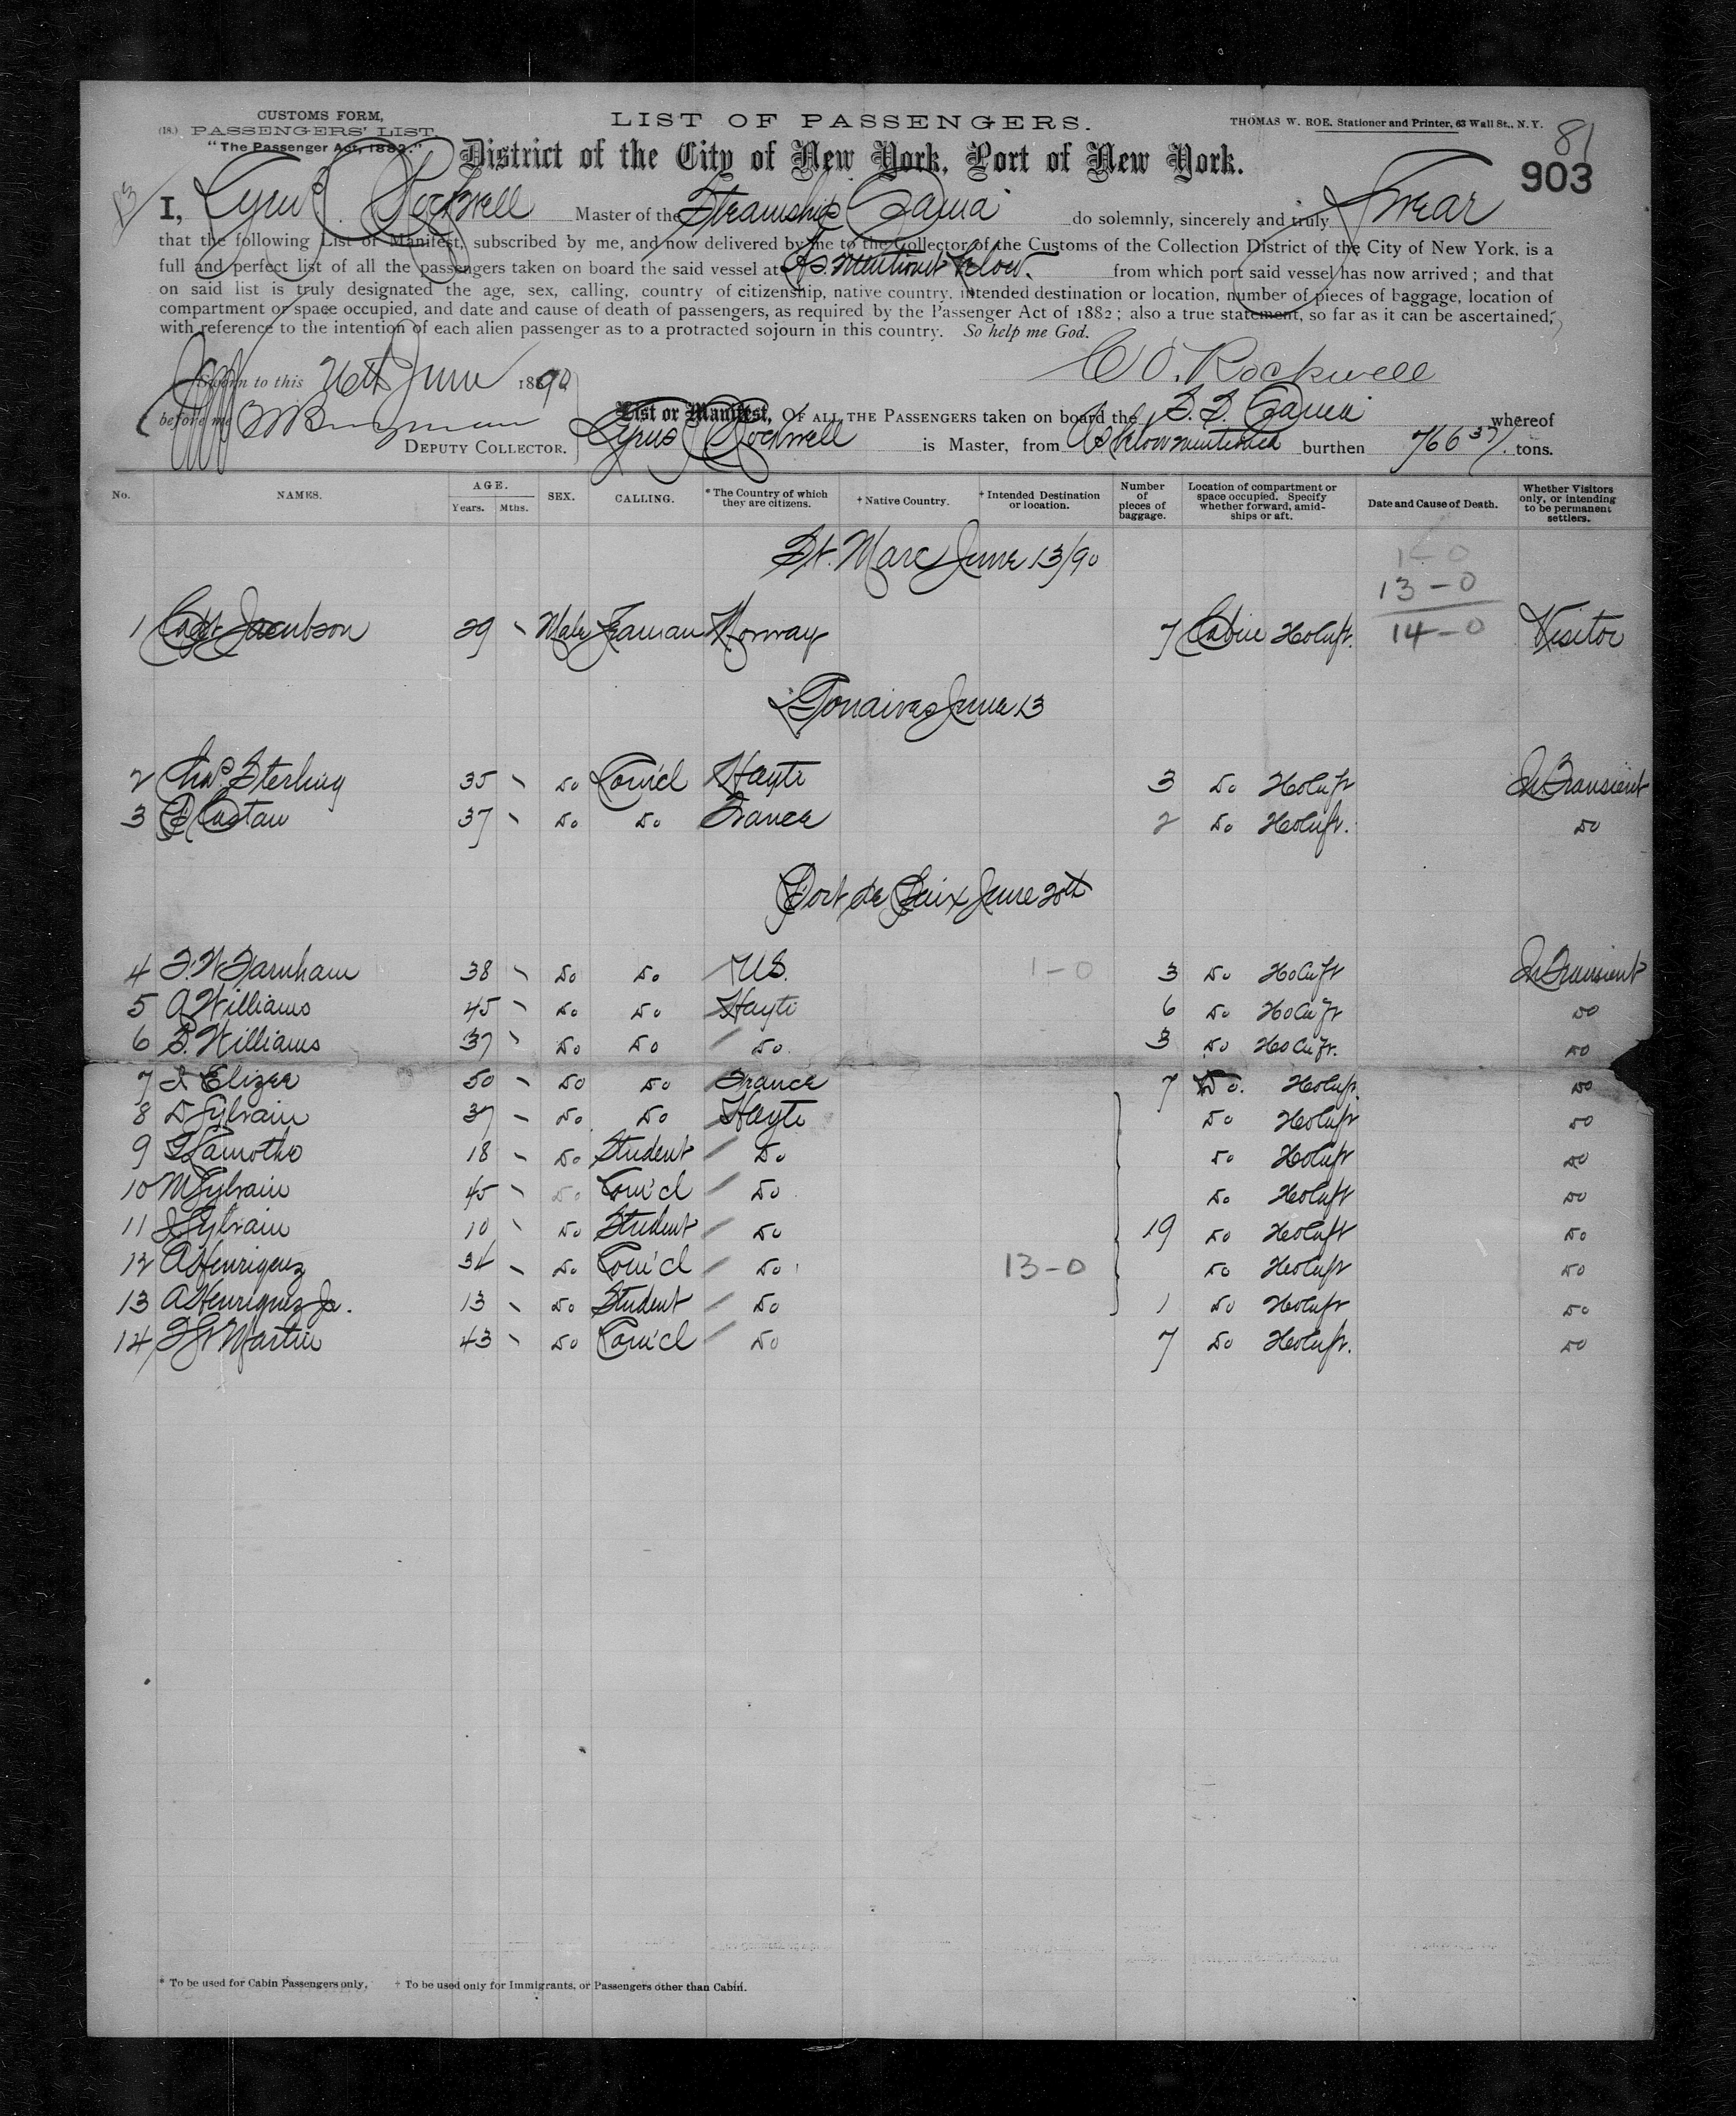 CUSTOMS FORM,
(18.) PASSENGERS' LIST.
"The Passenger Act, 1882."
LIST OF PASSENGERS.
THOMAS W. ROE, Stationer and Printer, 63 Wall St., N. Y.
81
903
District of the City of New York, Port of New York.
I, Cyrus O. Rockwell Master of the Steamship do solemnly, sincerely and truly Swear
that the following List or Manifest, subscribed by me, and now delivered by me to the Collector of the Customs of the Collection District of the City of New York, is a
full and perfect list of all the passengers taken on board the said vessel at As mentioned below. from which port said vessel has now arrived; and that
on said list is truly designated the age, sex, calling, country of citizenship, native country, intended destination or location, number of pieces of baggage, location of
compartment or space occupied, and date and cause of death of passengers, as required by the Passenger Act of 1882; also a true statement, so far as it can be ascertained,
with reference to the intention of each alien passenger as to a protracted sojourn in this country. So help me God.
Sworn to this 26th June 1890
C O. Rockwell
before me
DEPUTY COLLECTOR.
List or Manifest, OF ALL THE PASSENGERS taken on board the S. S. whereof
Cyrus O Rockwell is Master, from As below mentioned burthen 766 37/ tons.
No. NAMES. AGE. Years. Mths. SEX. CALLING. * The Country of which they are citizens. † Native Country. † Intended Destination or location. Number of pieces of baggage. Location of compartment or space occupied. Specify whether forward, amidships or aft. Date and Cause of Death. Whether Visitors only, or intending to be permanent settlers.
St. Marc June 13/90
1-0
13-0
14-0
1 Capt Jacobson 29 Male Seaman Norway 7 Cabin Visitor
Gonaives June 13
2 Chas. Sterling 35 Do Com'cl Hayti 3 Do In Transient
3 37 Do Do France 2 Do Do
Port de Paix June 20th
4 F. W Farnham 38 Do Do U.S. 1-0 3 Do In Transient
5 A Williams 45 Do Do Hayti 6 Do Do
6 S. Williams 37 Do Do Do 3 Do Do
7 Elizee 50 Do Do France 7 Do. Do
8 D Sylvain 37 Do Do Hayti Do Do
9 Lamothe 18 Do Student Do Do Do
10 M Sylvain 45 Do Com'cl Do Do Do
11 Sylvain 10 Do Student Do 19 Do Do
12 A Henriquez 34 Do Com'cl Do 13-0 Do Do
13 A Henriquez Jr. 13 Do Student Do 1 Do Do
14 St Martin 43 Do Com'cl Do 7 Do Do
* To be used for Cabin Passengers only. † To be used only for Immigrants, or Passengers other than Cabin.